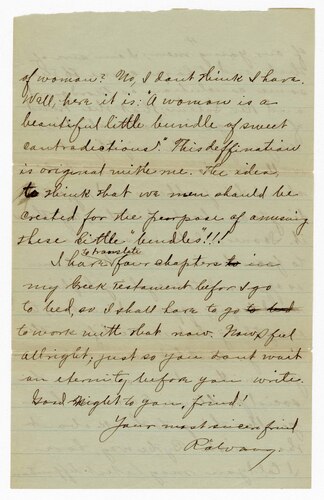 of woman? No, I dont think I have.
Well, here it is: "A woman is a
beautiful little bundle of sweet
contradictions!" This deffination
is original with me. The idea,
to think that we men should be
created for the perpose of amusing
these little "bundles"!!!
I have four chapters to translate in
my Greek Testament befor I go
to bed, so I shall have to go to bed
to work with that now. Now, feel
allright, just so you dont wait
an eternity before you write.
Good Night to you, frind!
Your most sincer frind